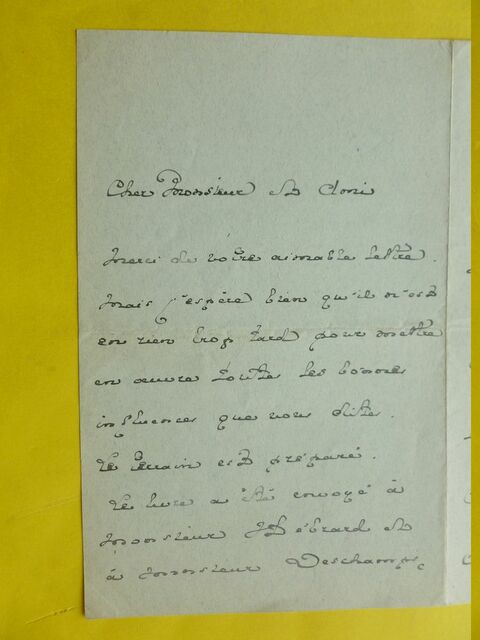 Cher Monsieur et Ami
Merci de votre aimable lettre.
Mais j'espère bien qu'il n'est
en rien trop tard pour mettre
en œuvre toutes les bonnes
influences que vous dites.
Le terrain est préparé.
Le livre a été envoyé à
Monsieur Hébrard et
à Monsieur Deschamps